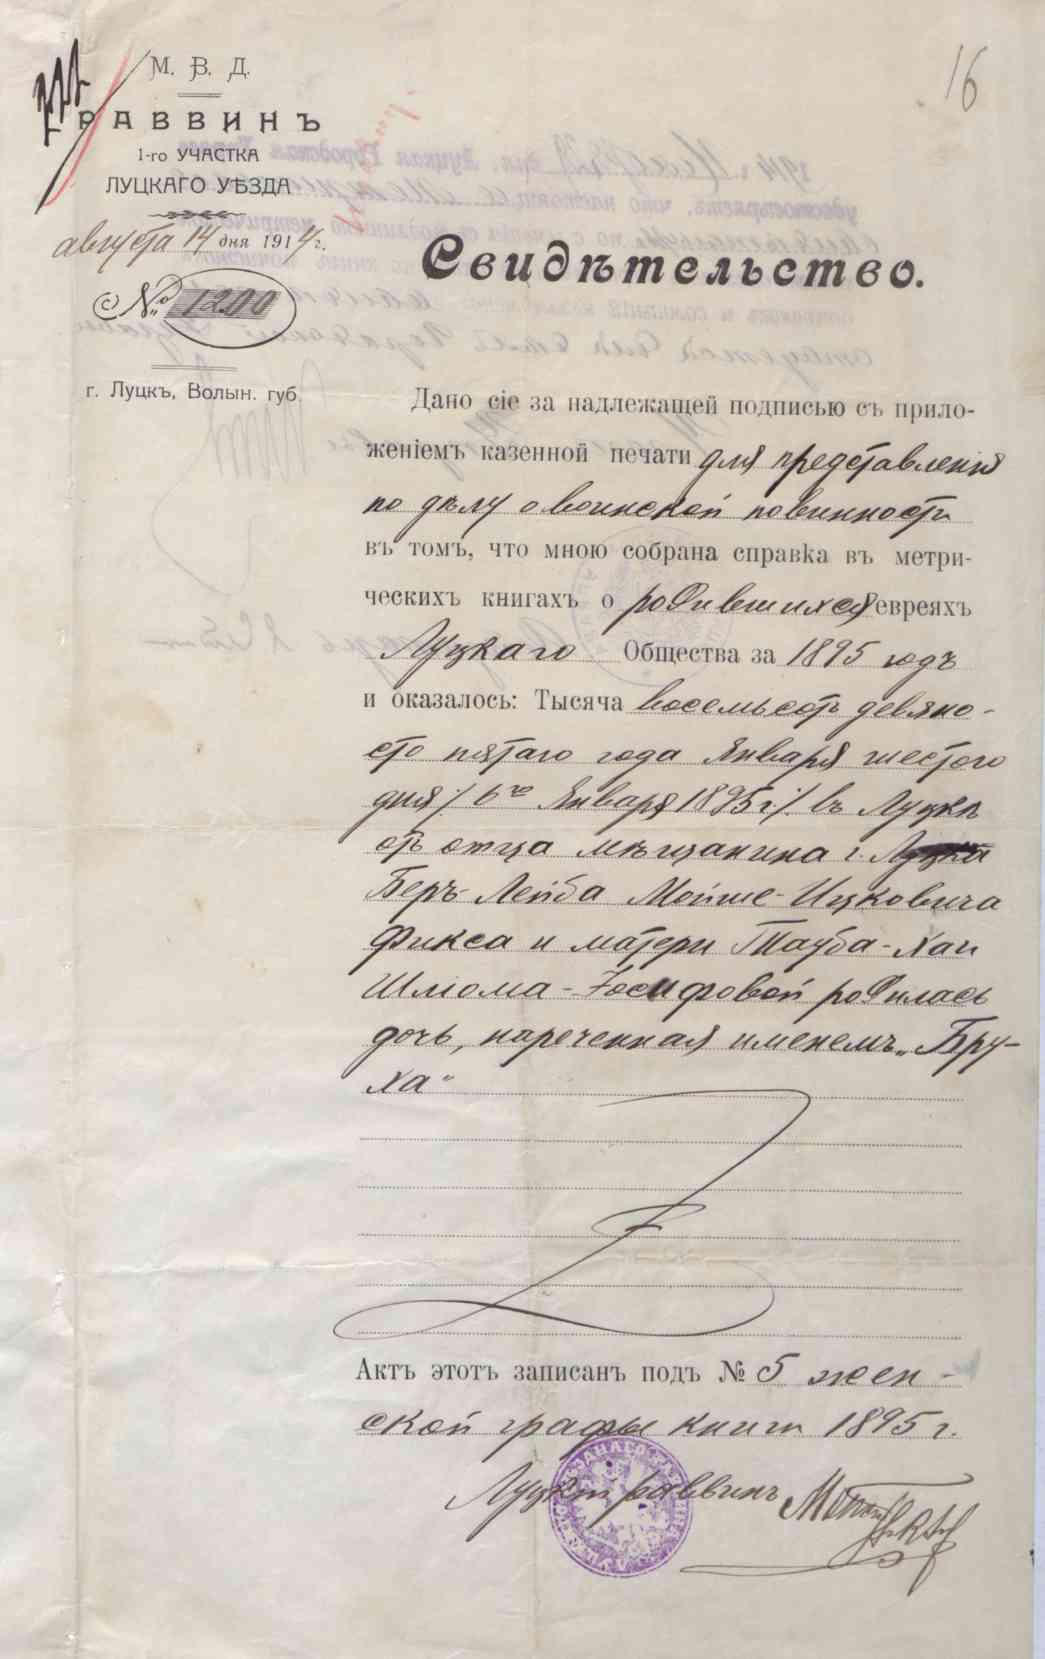 16
М. В. Д.
РАВВИНЪ
1-го УЧАСТКА
ЛУЦКАГО УѢЗДА
августа 14 дня 1914 г.
№ 1200
г. Луцкъ, Волын. губ.
Свидѣтельство.
Дано сіе за надлежащей подписью съ прило-
женіемъ казенной печати для представленія
по дѣлу о воинской повинности
въ томъ, что мною собрана справка въ метри-
ческихъ книгахъ о родившихся евреяхъ
Луцкаго Общества за 1895 годъ
и оказалось: Тысяча восемьсотъ девяно-
сто пятаго года Января шестого
дня /. 6го Января 1895 г ./. въ Луцкѣ
отъ отца мѣщанина г. Луцка
Беръ-Лейба Мойше-Ицковича
Фикса и матери Тауба-Хаи
Шлома-Іосифовой родилась
дочь, нареченная именемъ „Бру-
ха"
Актъ этотъ записанъ подъ № 5 жен-
ской графы книги 1895 г.
Луцкій раввинъ